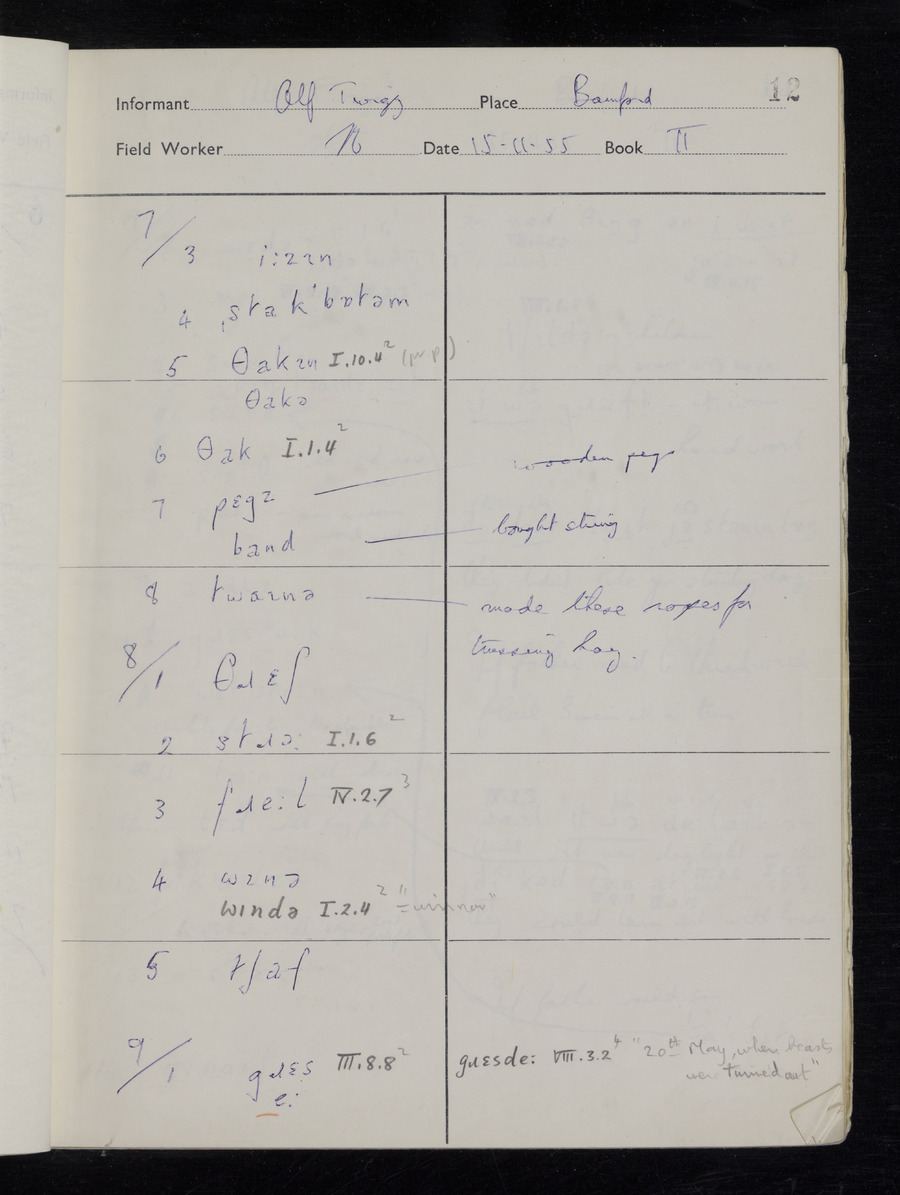 Informant Alf Twigg Place Bamford 12
Field Worker N Date 15-11-55 Book II
7/3 i:zɪn
4 ˌstak'bɒtəm
5 θakɪn I.10.4² (pr.p.)
θakə
6 θak I.1.4²
7 pɛgz wooden pegs
band bought string
8 twaɪnə made these ropes for
trussing hay.
8/1 θɹɛʃ
2 stɹɔ: I.1.6²
3 fɹe:l IV.2.7³
4 wɪnə
wɪndə I.2.4² "=winnow"
5 tʃaf
9/1 gɹɛs III.8.8² gɹɛsde: VIII.3.2⁴ "20th May, when beasts
were turned out"
e: